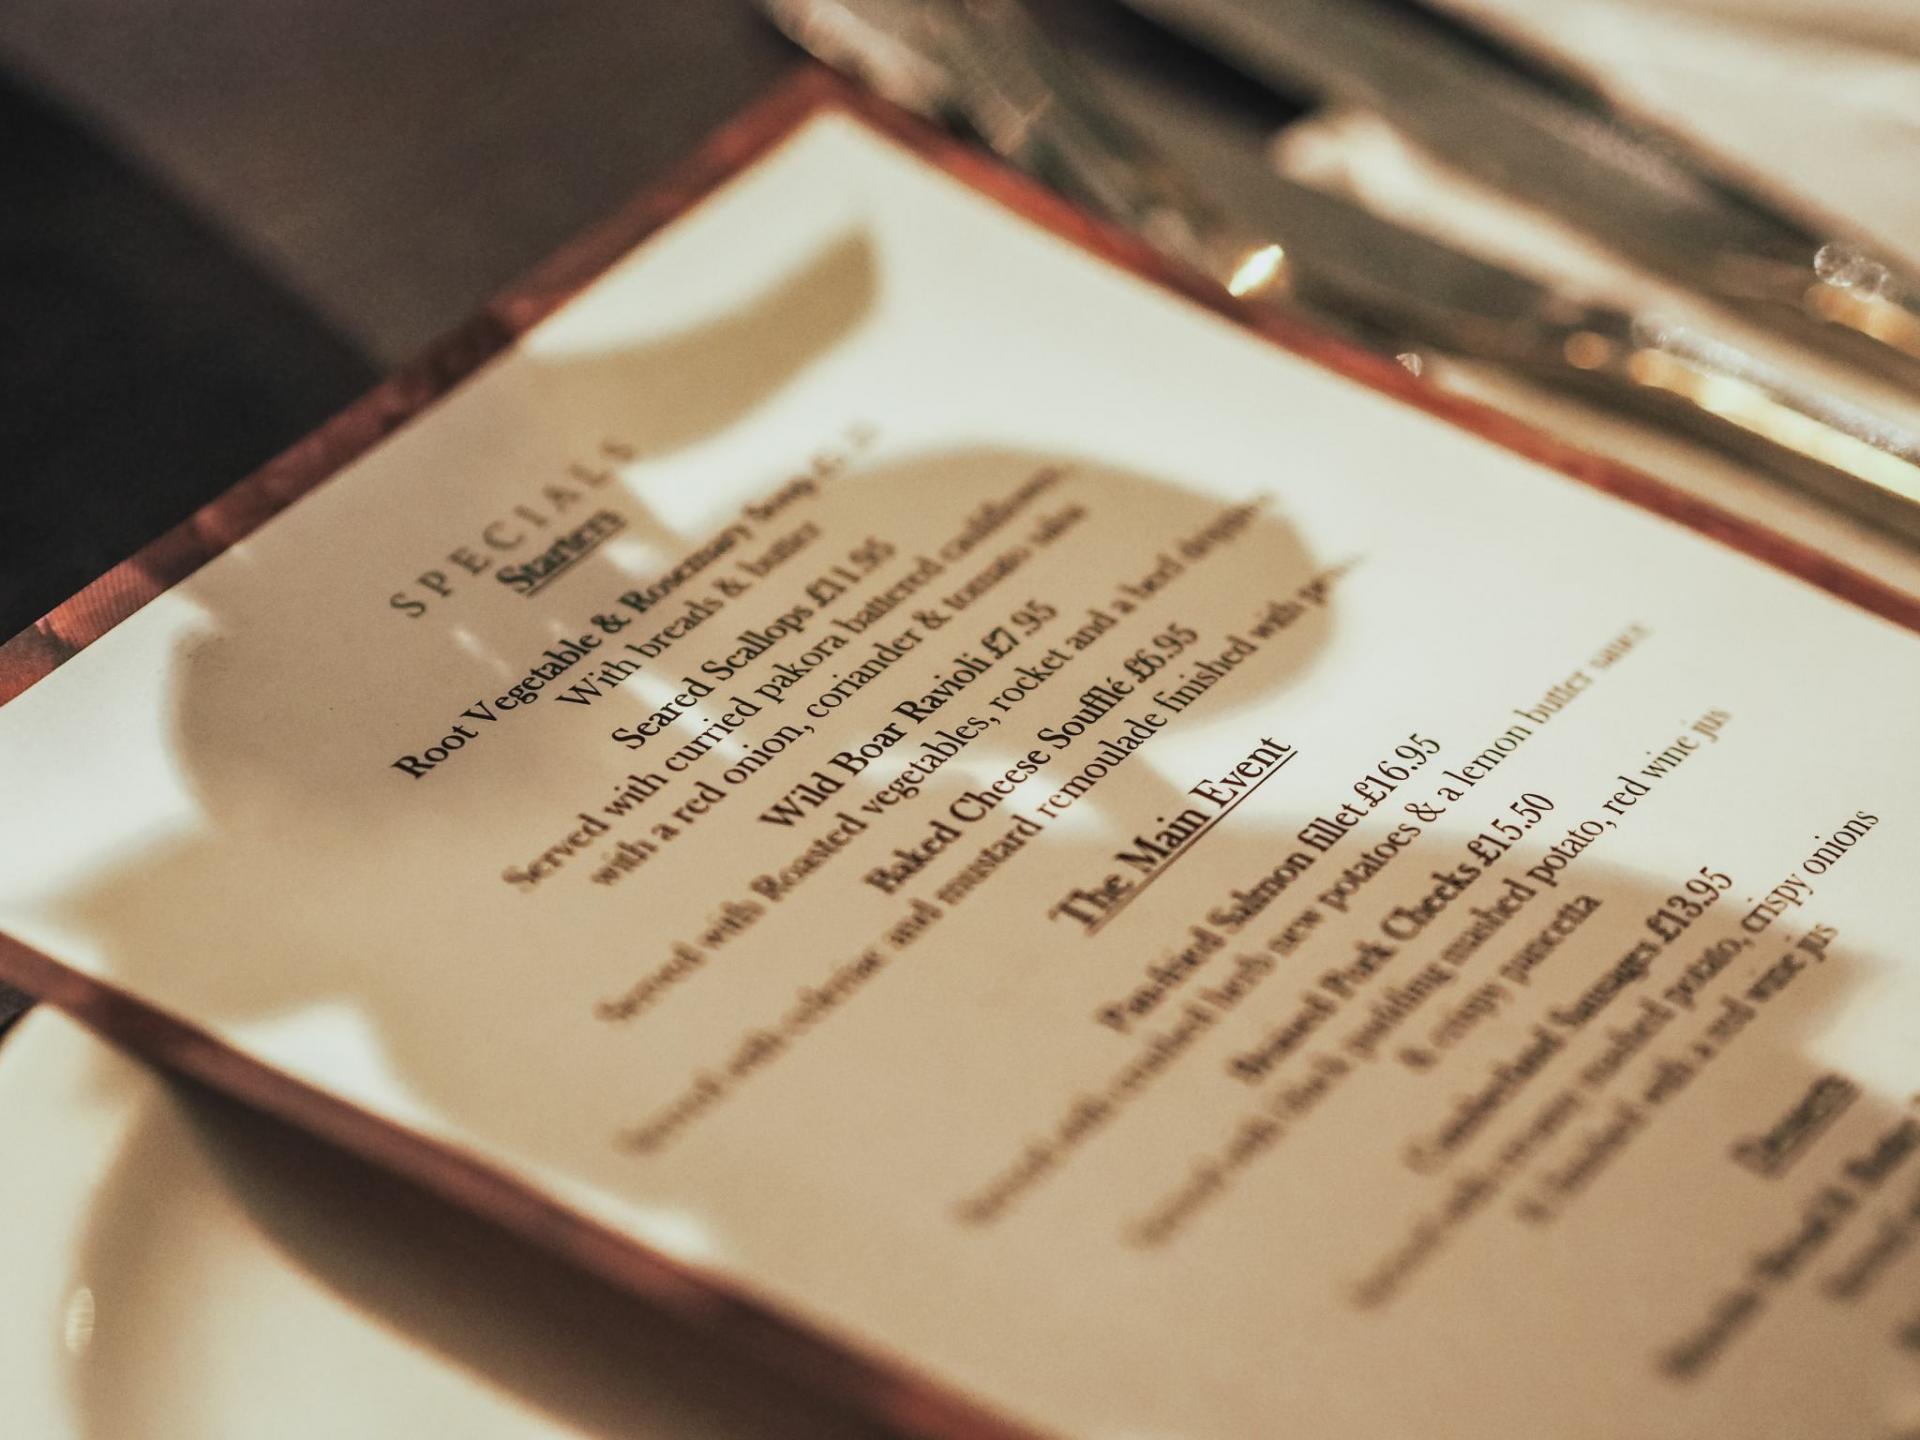 SPECIALS
Starters
Root Vegetable & Rosemary Soup
With breads & butter
Seared Scallops £11.95
Served with curried pakora battered cauliflower,
with a red onion, coriander & tomato salsa
Wild Boar Ravioli £7.95
Served with Roasted vegetables, rocket and a beef
Baked Cheese Soufflé £6.95
Served with celeriac and mustard remoulade finished with
The Main Event
Pan-fried Salmon fillet £16.95
Served with crushed herb new potatoes & a lemon butter sauce
Braised Pork Cheeks £15.50
Served with black pudding mashed potato, red wine jus
& crispy pancetta
Cumberland Sausages £13.95
Served with creamy mashed potato, crispy onions
& finished with a red wine jus
Desserts